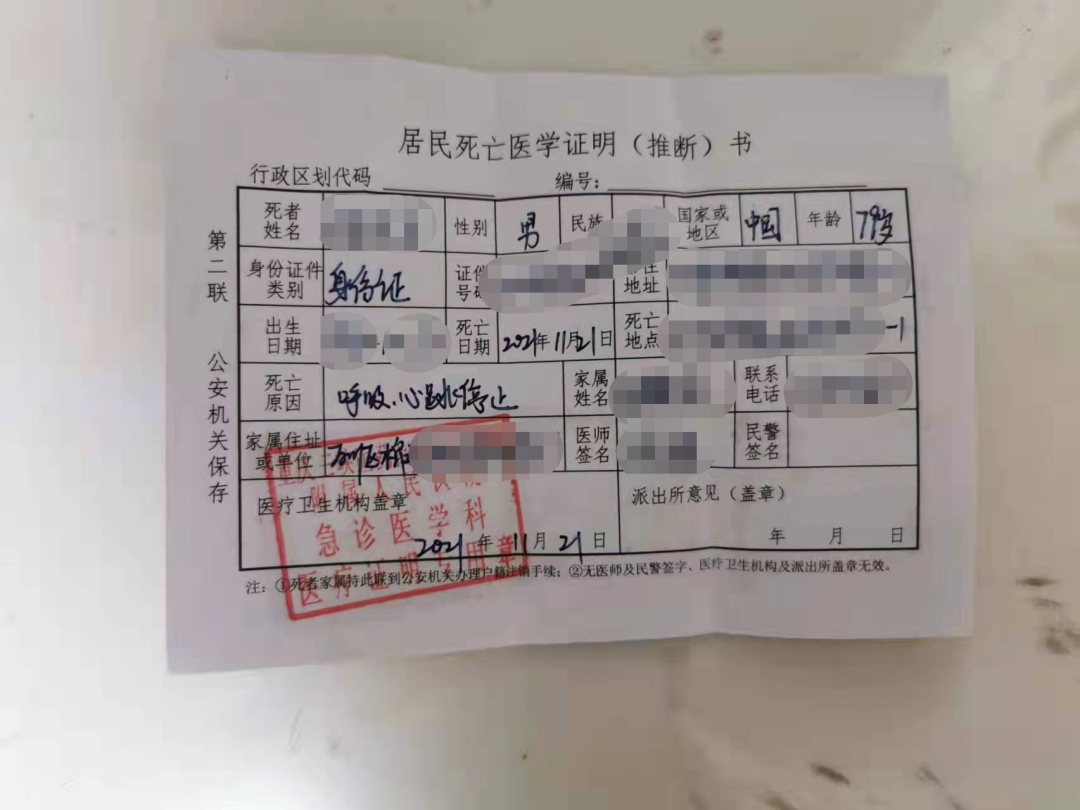 居民死亡医学证明（推断）书
行政区划代码 编号：
第二联 公安机关保存
死者姓名 性别 男 民族 国家或地区 中国 年龄 79岁
身份证件类别 身份证 证件号码 地址
出生日期 死亡日期 2021年11月21日 死亡地点 -1
死亡原因 呼吸、心跳停止 家属姓名 联系电话
家属住址或单位 医师签名 民警签名
医疗卫生机构盖章 派出所意见（盖章）
附属人民医院
急诊医学科
医疗证明专用章
2021年11月21日 年 月 日
注：①死者家属持此联到公安机关办理户籍注销手续；②无医师及民警签字、医疗卫生机构及派出所盖章无效。